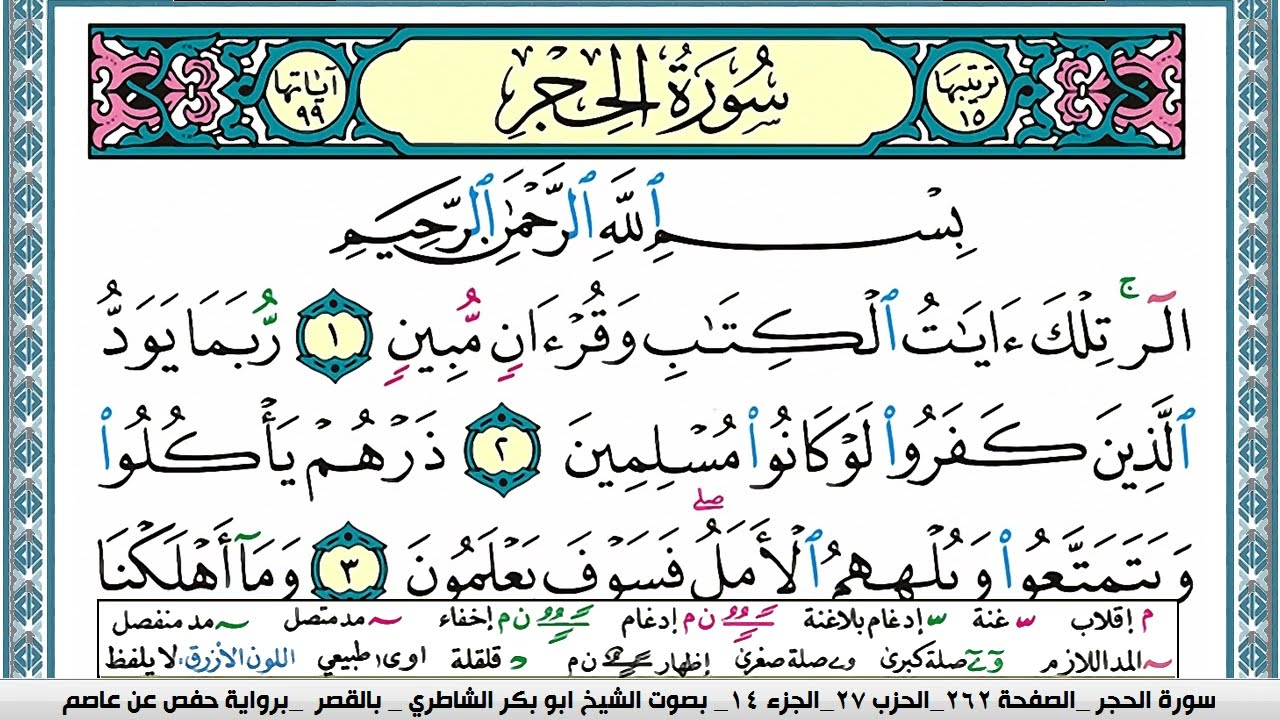 ترتيبها ١٥ سُورَةُ الحِجْرِ آياتها ٩٩
بِسْمِ ٱللَّهِ ٱلرَّحْمَٰنِ ٱلرَّحِيمِ
الٓر ۚ تِلْكَ ءَايَٰتُ ٱلْكِتَٰبِ وَقُرْءَانٍ مُّبِينٍ ١ رُّبَمَا يَوَدُّ
ٱلَّذِينَ كَفَرُوا۟ لَوْ كَانُوا۟ مُسْلِمِينَ ٢ ذَرْهُمْ يَأْكُلُوا۟
وَيَتَمَتَّعُوا۟ وَيُلْهِهِمُ ٱلْأَمَلُ ۖ فَسَوْفَ يَعْلَمُونَ ٣ وَمَآ أَهْلَكْنَا
م إقلاب س غنة س إدغام بلاغنة ن م إدغام ن م إخفاء مد متصل مد منفصل
المد اللازم و ے صلة كبرى و ے صلة صغرى إظهار ن م د قلقلة اوى ا طبيعي اللون الأزرق: لا يلفظ
سورة الحجر _الصفحة ٢٦٢_الحزب ٢٧_الجزء ١٤_ بصوت الشيخ ابو بكر الشاطري _ بالقصر _برواية حفص عن عاصم